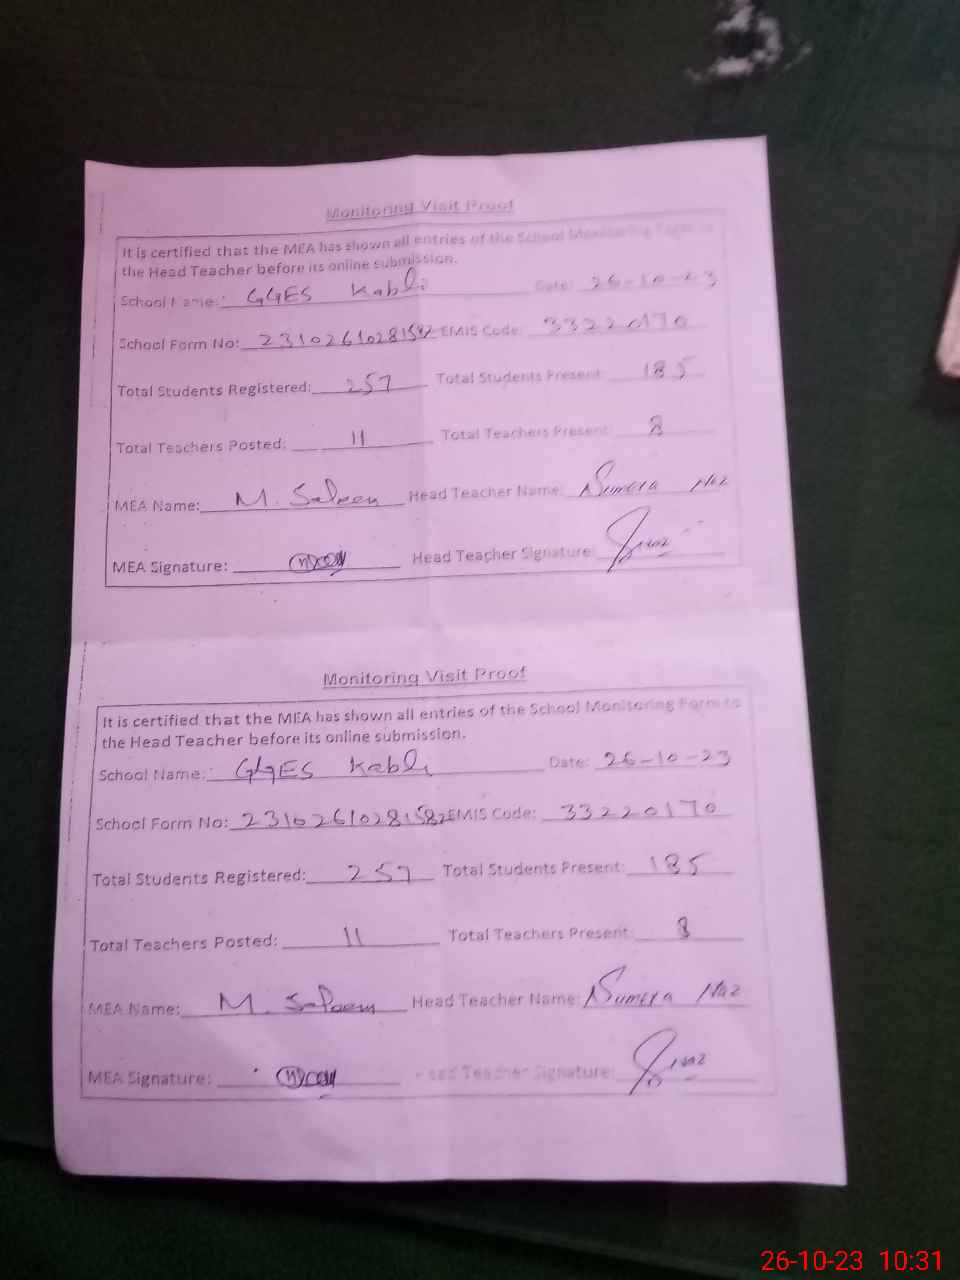 Monitoring Visit Proof
It is certified that the MEA has shown all entries of the School Monitoring Form to
the Head Teacher before its online submission.
School Name: GGES Kabli Date: 26-10-23
School Form No: 23102610281582 EMIS Code: 33220170
Total Students Registered: 257 Total Students Present: 185
Total Teachers Posted: 11 Total Teachers Present: 8
MEA Name: M. Saleem Head Teacher Name: Sumera Naz
MEA Signature: Head Teacher Signature:
Monitoring Visit Proof
It is certified that the MEA has shown all entries of the School Monitoring Form to
the Head Teacher before its online submission.
School Name: GGES Kabli Date: 26-10-23
School Form No: 23102610281582 EMIS Code: 33220170
Total Students Registered: 257 Total Students Present: 185
Total Teachers Posted: 11 Total Teachers Present: 8
MEA Name: M. Saleem Head Teacher Name: Sumera Naz
MEA Signature: Head Teacher Signature:
26-10-23 10:31